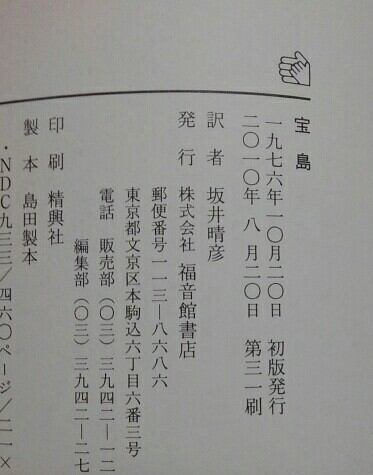 宝島
一九七六年一〇月二〇日 初版発行
二〇一〇年 八 月二〇日 第三一刷
訳者 坂井晴彦
発行 株式会社 福音館書店
郵便番号一一三―八六八六
東京都文京区本駒込六丁目六番三号
電話 販売部(〇三)三九四二―一二
編集部(〇三)三九四二―二七
印刷 精興社
製本 島田製本
・NDC九三三/四六〇ページ/二一×